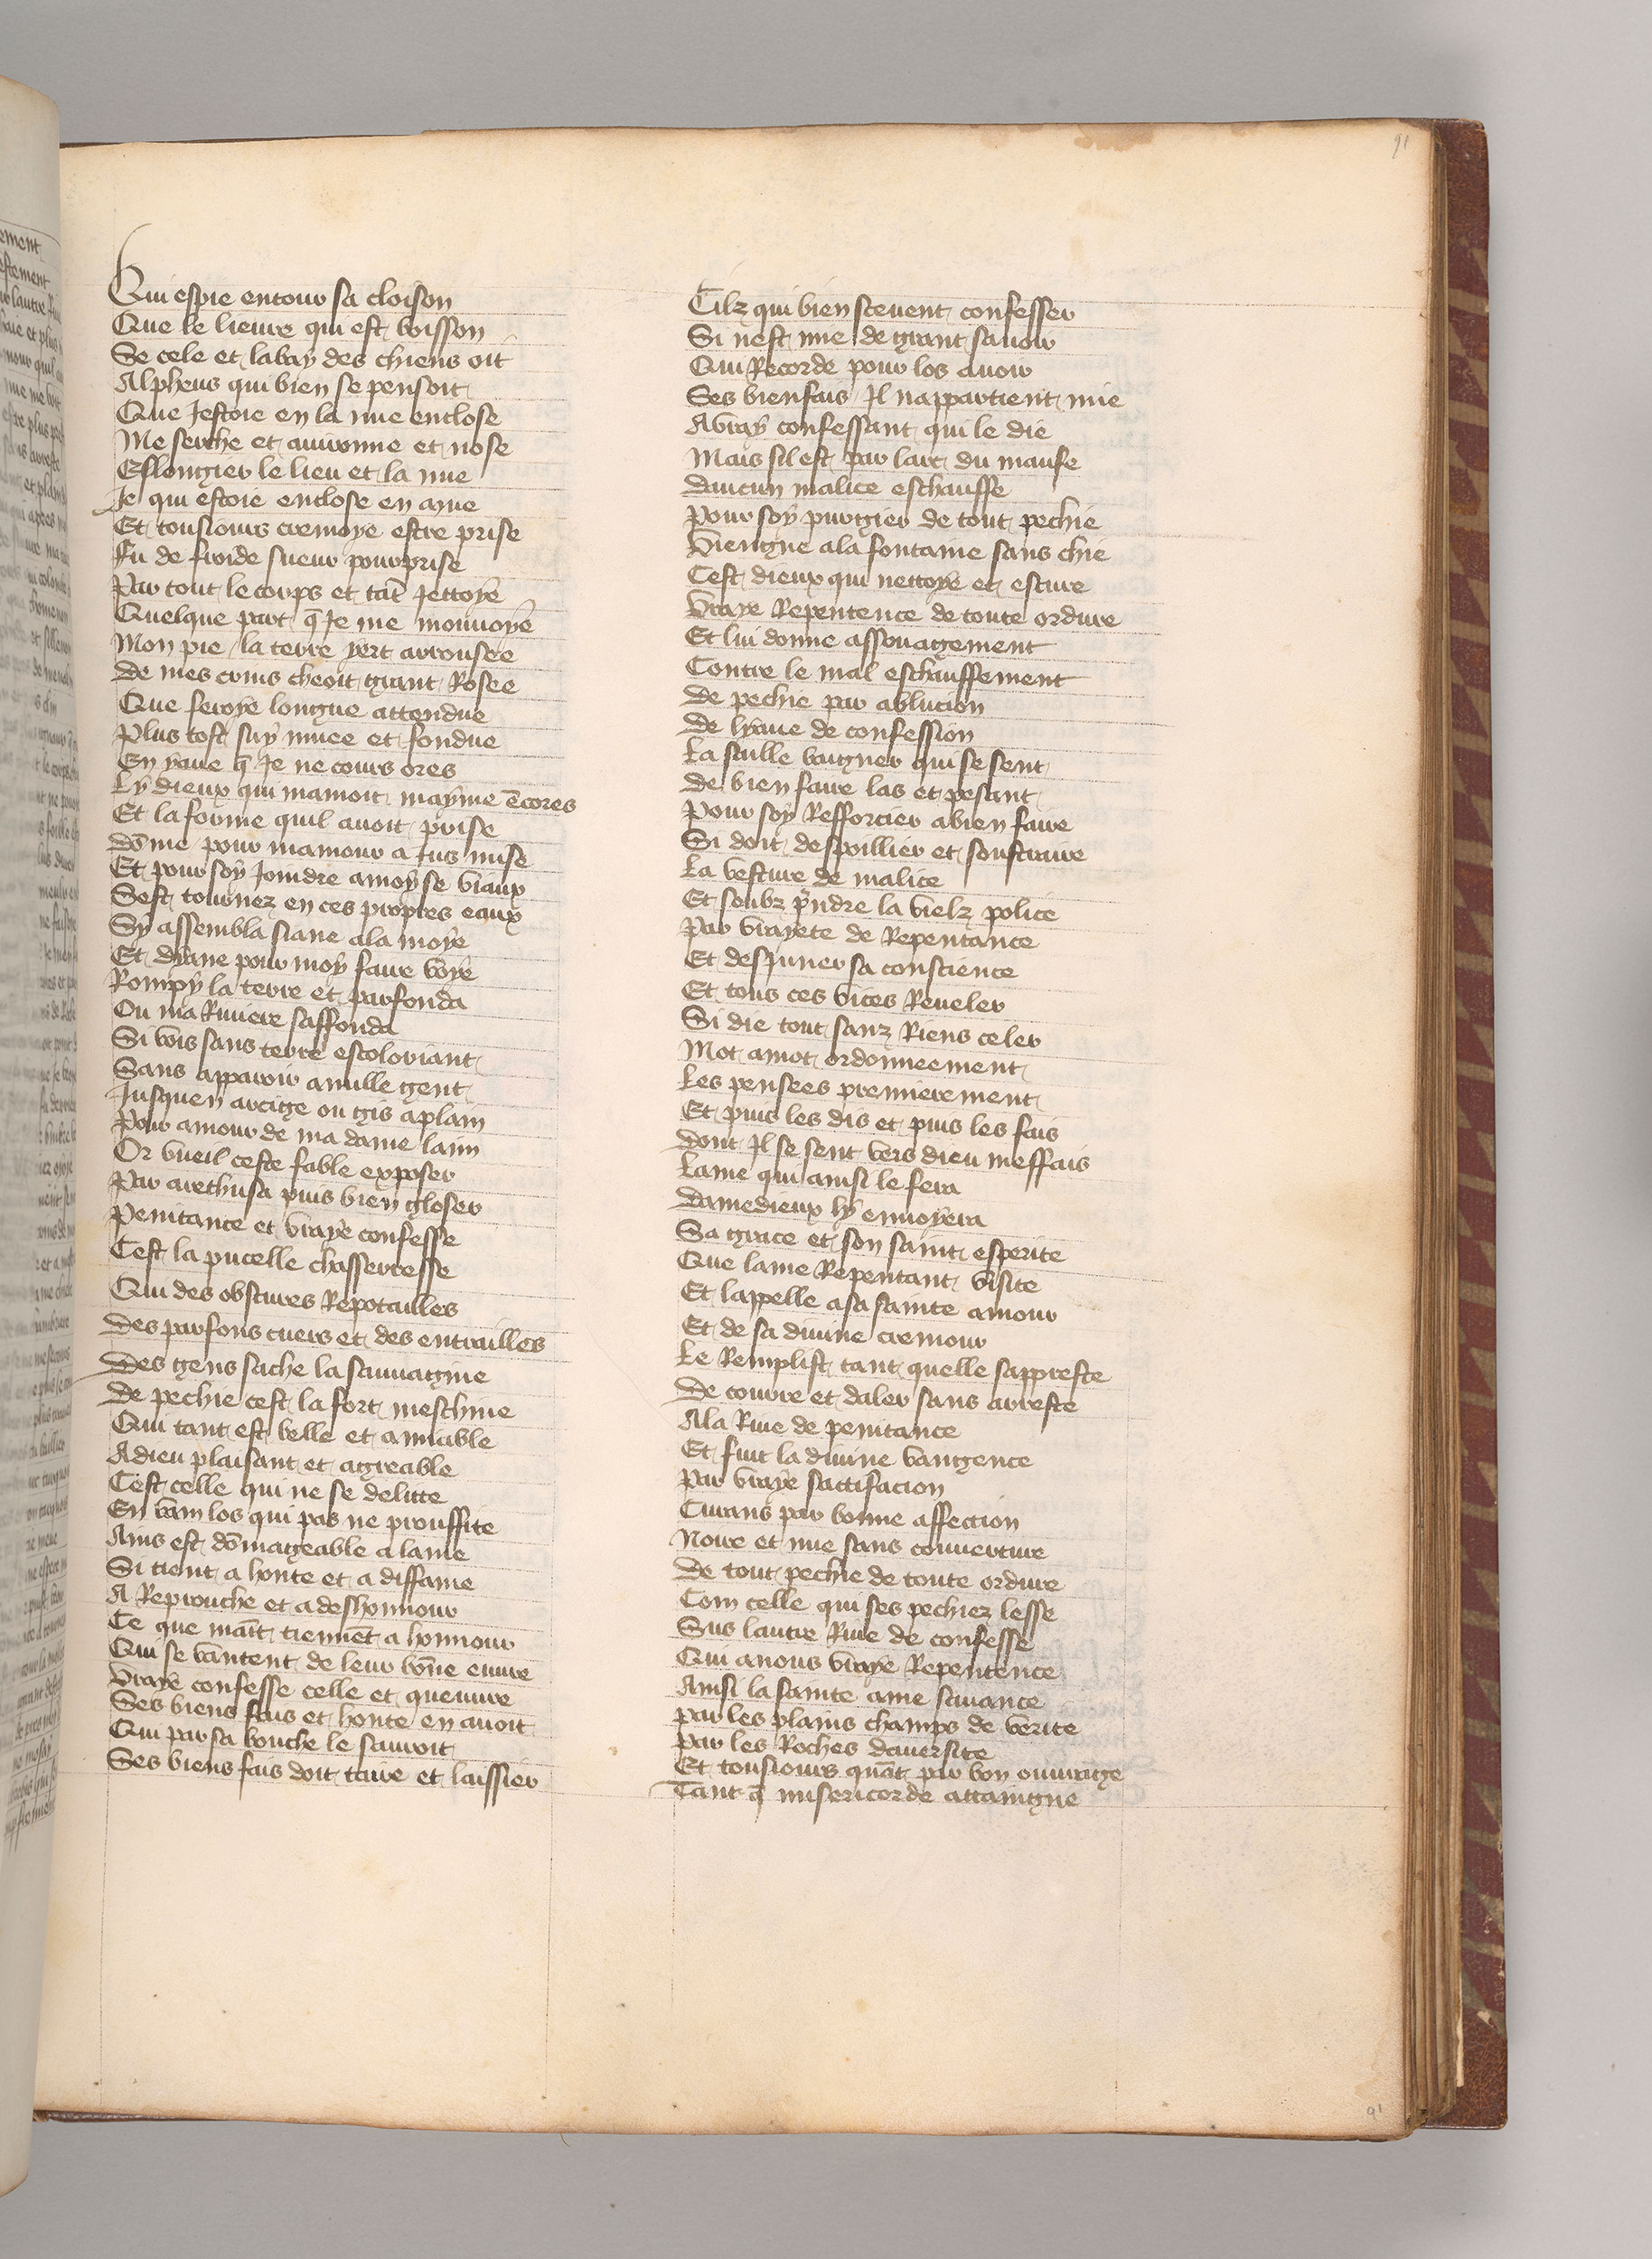 91
Qui espie entour sa cloison
Que le lieure qui est boisson
Se cele et labay des chiens oit
Alpheus qui bien se pensoit
Que Jestoie en la nue enclose
Me serche et auironne et nose
Eslongier le lieu et la nue
Je qui estoie enclose en mue
Et tousiours cremoye estre prise
Fu de froide sueur pourprise
Par tout le corps et tāt Jettoye
Quelque part q̄ Je me mouuoye
Mon pie la terre yert arrousee
De mes crins cheoit grant Rosee
Que feroye longue attendue
Plus tost suy muee et fondue
En yaue q̄ Je ne cours ores
Ly dieux qui mamoit mayme ēcores
Et la forme quil auoit prise
Dōme pour mamour a Jus mise
Et pour soy Joindre amoy se viaux
Sest tournez en ces propres eaux
Sy assembla siaue ala moye
Et dyane pour moy faire voye
Rompy la terre et parfonda
Ou ma Riuiere saffonda
Si vois sans terre escoloriant
Sans apparoir anulle gent
Jusquen arcige ou gis aplain
Pour amour de ma dame laim
Or vueil ceste fable exposer
Par arethusa puis bien gloser
Penitance et vraye confesse
Cest la pucelle chasserresse
Qui des obscures Repotailles
Des parfons cuers et des entrailles
Des gens sache la sauuagine
De pechie cest la fort meschine
Qui tant est belle et amiable
Adieu plaisant et agreable
Cest celle qui ne se delitte
En vain los qui pas ne prouffite
Ains est dōmageable a lame
Si tient a honte et a diffame
A Reprouche et a deshonnour
Ce que maīt tiennēt a honnour
Qui se vantent de leur bōne euure
Vraye confesse celle et queuure
Ses biens fais et honte en auoit
Qui par sa bouche le sauroit
Ses biens fais doit taire et laissier
Cilz qui bien sceuent confesser
Si nest mie de grant sauoir
Qui Recorde pour los auoir
Ses bienfais Jl nappartient mie
Avray confessant qui le die
Mais sil est par lart du maufe
Daucun malice eschauffe
Pour soy purgier de tout pechie
Viengne ala fontaine sans chie
Cest dieux qui nettoye et escure
Vraye Repentence de toute ordure
Et lui donne assouagement
Contre le mal eschauffement
De pechie par ablucion
De lyaue de confession
La saille baigner qui se sent
De bien faire las et pesant
Pour soy Refforcier abien faire
Si doit despoillier et soustraire
La vesture de malice
Et soubz p̄ndre la vielz police
Par vrayete de Repentance
Et desJuner sa conscience
Et tous ces vices Reueler
Si die tout sanz Riens celer
Mot amot ordonneement
Les pensees premierement
Et puis les dis et puis les fais
Dont Jl se sent vers dieu meffais
Lame qui ainsi le fera
Damedieux ly enuoyera
Sa grace et son saint esperite
Que lame Repentant visite
Et lappelle asa sainte amour
Et de sa diuine cremour
Le Remplist tant quelle sappreste
De courre et daler sans arreste
Ala Riue de penitance
Et fuit la diuine vangence
Par vraye sattifacion
Curans par bonne affection
Noire et nue sans couuerture
De tout pechie de toute ordure
Com celle qui ses pechiez lesse
Sus lautre Riue de confesse
Qui anous vraye Repentence
Ainsi la sainte ame sauance
Par les plains champs de verite
Par les Roches dauersite
Et tousiours quāt par bon ouurāige
Tant q̄ misericorde attaingne
91